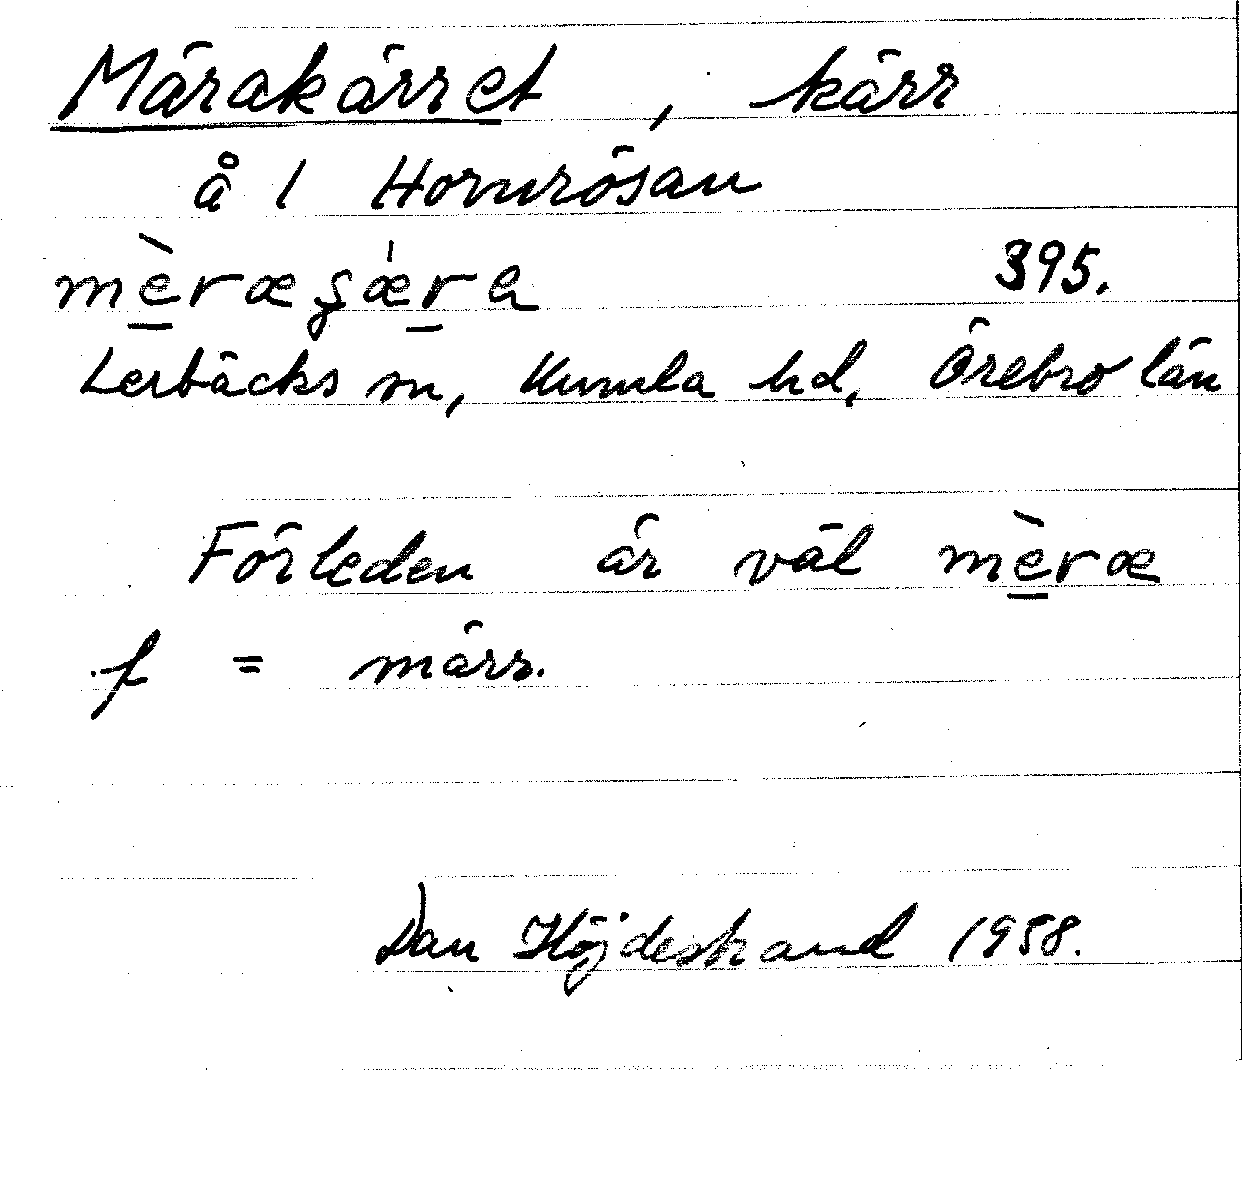 Märakärret, kärr
å 1 Hornrösan
mèræʂǽra 395.
Lerbäcks sn, Kumla hd, Örebro län
Förleden är väl mèræ
f = märr.
Dan Höjdestrand 1958.